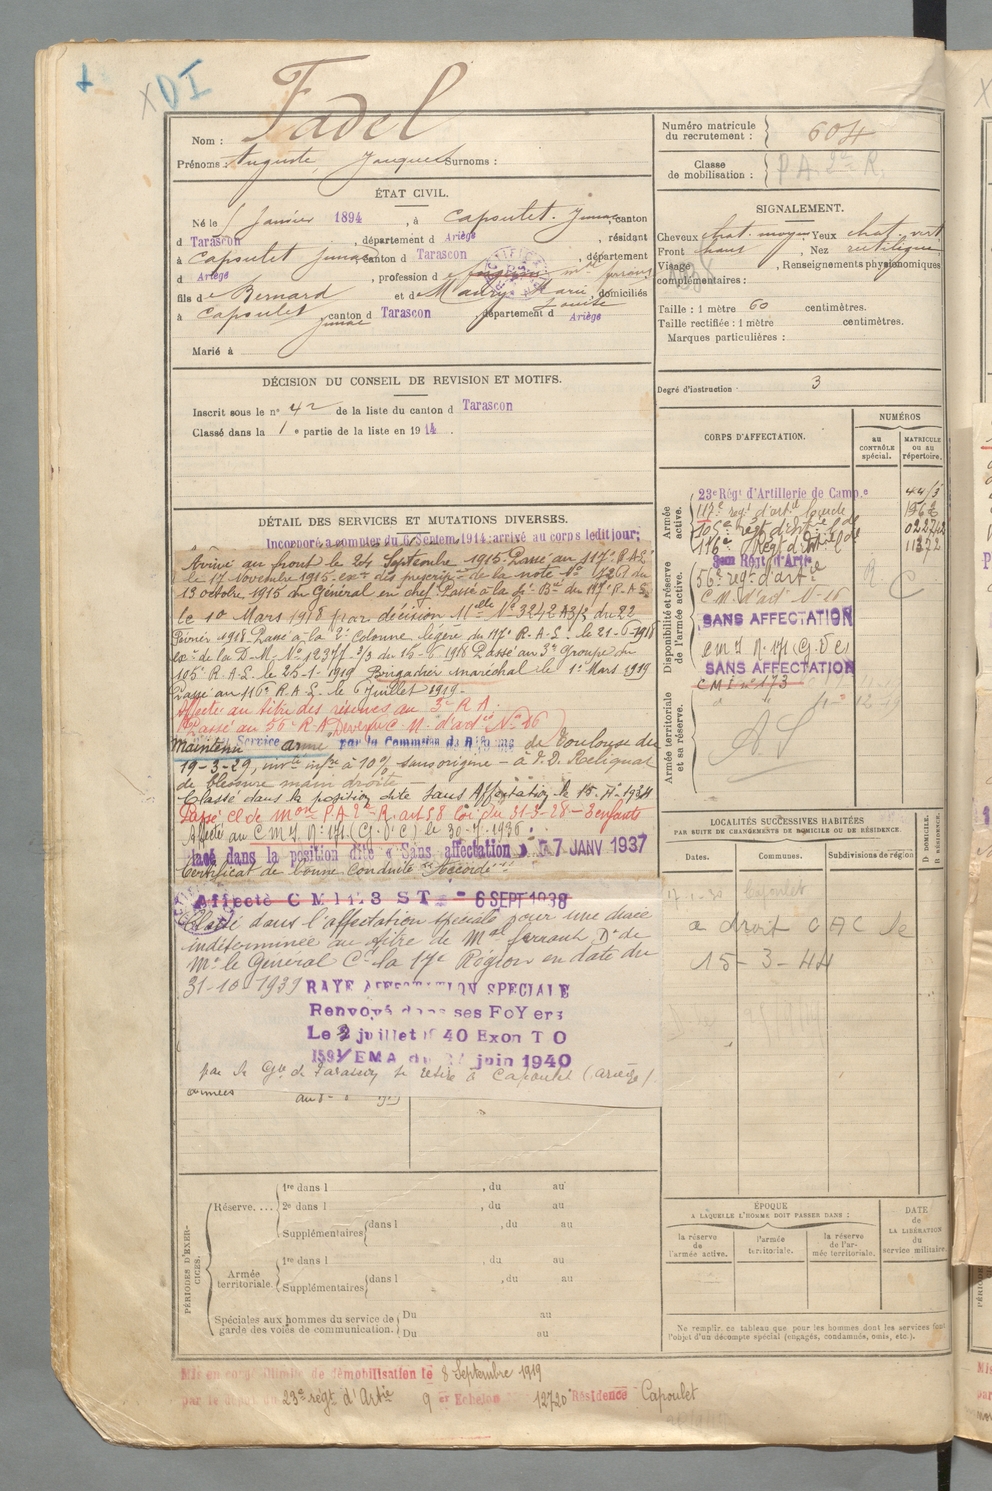 DI
Fadel
Nom :
Prénoms : Auguste, Jacques Surnoms :
ÉTAT CIVIL.
Né le 5 Janvier 1894, à Capoulet-Junac, canton
d Tarascon, département d Ariège, résidant
à Capoulet Junac canton d Tarascon, département
d Ariège, profession de
fils de Bernard et de Maury Marie Louise, domiciliés
à Capoulet Junac canton d Tarascon, département d Ariège
Marié à
DÉCISION DU CONSEIL DE REVISION ET MOTIFS.
Inscrit sous le n° 42 de la liste du canton d Tarascon
Classé dans la 1e partie de la liste en 1914.
DÉTAIL DES SERVICES ET MUTATIONS DIVERSES.
Incorporé à compter du 6 Septem. 1914; arrivé au corps ledit jour;
Arrivé au front le 24 Septembre 1915. Passé au 117e R.A.L.
le 17 Novembre 1915. exon des prescriptions de la note No 17261 du
13 octobre 1915 du Général en chef. Passé à la 6e Bie du 117e R.A.L.
le 10 Mars 1918 par décision Melle No 3242 A3/3 du 22
Février 1918. Passé à la 2e Colonne légère du 117e R.A.L. le 21-6-1918
exon de la D.M. No 12377 3/3 du 15-6-1918 Passé au 3e Groupe du
105e R.A.L. le 25-1-1919 Brigadier maréchal le 1er Mars 1919
Passé au 116e R.A.L. le 6 Juillet 1919.
Affecté au titre des réserves au 3e R.A.
Passé au 56e R.A. Devenu C.M. d'artie No 16
Maintenu Service armé par la Commission de Réforme de Toulouse du
19-3-29, invté infre à 10% sans origine - à I.D. Reliquat
de blessure main droite
Classé dans la position dite sans Affectation le 15-4-1934
Passé cl de mon P.A. 2e R. art 58 Loi du 31-3-28 - 3 enfants
Affecté au C M I N° 171 (G.V.C) le 30-7-1936
lacé dans la position dite « Sans affectation » 7 JANV 1937
Certificat de bonne conduite "Accordé"
Affecté C M I 1 3 S T 6 SEPT 1938
Classé dans l'affectation spéciale pour une durée
indéterminée au titre de Mal ferrant, Dn de
Mr le Général Ct la 17e Région en date du
31-10-1939 RAYE AFFECTATION SPECIALE
Renvoyé dans ses FoYers
Le 2 juillet 1940 Exon T O
1593/EMA du juin 1940
par la Gie de Tarascon se retire à Capoulet (Ariège).
armées
Numéro matricule du recrutement : 604
Classe de mobilisation : P.A. 2e R.
SIGNALEMENT.
Cheveux chat. moyen, Yeux chat. vert
Front haut, Nez rectiligne
Visage , Renseignements physionomiques
complémentaires :
Taille : 1 mètre 60 centimètres.
Taille rectifiée : 1 mètre centimètres.
Marques particulières :
Degré d'instruction 3
CORPS D'AFFECTATION.
NUMÉROS
au CONTRÔLE spécial.
MATRICULE ou au répertoire.
Armée active.
23e Régt d'Artillerie de Camp.e
117e régt d'artie lourde
105e régt d'artie lde
116e Régt d'artie lde 11372
Disponibilité et réserve de l'armée active.
56e régt d'artie
C.M. d'artie N° 16
SANS AFFECTATION
C M I N. 171 (G.V.C)
SANS AFFECTATION
C M I n° 173
Armée territoriale et sa réserve.
A S
LOCALITÉS SUCCESSIVES HABITÉES
PAR SUITE DE CHANGEMENTS DE DOMICILE OU DE RÉSIDENCE.
Dates.
Communes.
Subdivisions de région
D DOMICILE.
R RÉSIDENCE.
Capoulet
a droit C A C le
15-3-44
PÉRIODES D'EXERCICES.
Réserve....
1re dans l , du au
2e dans l , du au
Supplémentaires dans l , du au
Armée territoriale.
1re dans l , du au
Supplémentaires dans l , du au
Spéciales aux hommes du service de
garde des voies de communication.
Du au
Du au
ÉPOQUE
A LAQUELLE L'HOMME DOIT PASSER DANS :
la réserve de l'armée active.
l'armée territoriale.
la réserve de l'armée territoriale.
DATE de LA LIBÉRATION du service militaire.
Ne remplir ce tableau que pour les hommes dont les services font
l'objet d'un décompte spécial (engagés, condamnés, omis, etc.).
Mis en congé illimité de démobilisation le 8 Septembre 1919
par le dépôt du 23e régt d'Artie 9e Echelon 12720 Résidence Capoulet